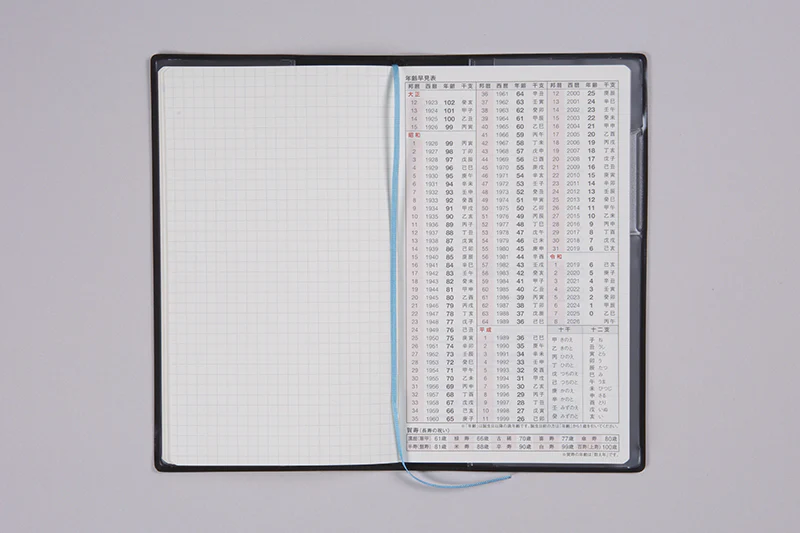 年齢早見表
邦暦 西暦 年齢 干支
大正
12 1923 102 癸亥
13 1924 101 甲子
14 1925 100 乙丑
15 1926 99 丙寅
昭和
1 1926 99 丙寅
2 1927 98 丁卯
3 1928 97 戊辰
4 1929 96 己巳
5 1930 95 庚午
6 1931 94 辛未
7 1932 93 壬申
8 1933 92 癸酉
9 1934 91 甲戌
10 1935 90 乙亥
11 1936 89 丙子
12 1937 88 丁丑
13 1938 87 戊寅
14 1939 86 己卯
15 1940 85 庚辰
16 1941 84 辛巳
17 1942 83 壬午
18 1943 82 癸未
19 1944 81 甲申
20 1945 80 乙酉
21 1946 79 丙戌
22 1947 78 丁亥
23 1948 77 戊子
24 1949 76 己丑
25 1950 75 庚寅
26 1951 74 辛卯
27 1952 73 壬辰
28 1953 72 癸巳
29 1954 71 甲午
30 1955 70 乙未
31 1956 69 丙申
32 1957 68 丁酉
33 1958 67 戊戌
34 1959 66 己亥
35 1960 65 庚子
邦暦 西暦 年齢 干支
36 1961 64 辛丑
37 1962 63 壬寅
38 1963 62 癸卯
39 1964 61 甲辰
40 1965 60 乙巳
41 1966 59 丙午
42 1967 58 丁未
43 1968 57 戊申
44 1969 56 己酉
45 1970 55 庚戌
46 1971 54 辛亥
47 1972 53 壬子
48 1973 52 癸丑
49 1974 51 甲寅
50 1975 50 乙卯
51 1976 49 丙辰
52 1977 48 丁巳
53 1978 47 戊午
54 1979 46 己未
55 1980 45 庚申
56 1981 44 辛酉
57 1982 43 壬戌
58 1983 42 癸亥
59 1984 41 甲子
60 1985 40 乙丑
61 1986 39 丙寅
62 1987 38 丁卯
63 1988 37 戊辰
64 1989 36 己巳
平成
1 1989 36 己巳
2 1990 35 庚午
3 1991 34 辛未
4 1992 33 壬申
5 1993 32 癸酉
6 1994 31 甲戌
7 1995 30 乙亥
8 1996 29 丙子
9 1997 28 丁丑
10 1998 27 戊寅
11 1999 26 己卯
邦暦 西暦 年齢 干支
12 2000 25 庚辰
13 2001 24 辛巳
14 2002 23 壬午
15 2003 22 癸未
16 2004 21 甲申
17 2005 20 乙酉
18 2006 19 丙戌
19 2007 18 丁亥
20 2008 17 戊子
21 2009 16 己丑
22 2010 15 庚寅
23 2011 14 辛卯
24 2012 13 壬辰
25 2013 12 癸巳
26 2014 11 甲午
27 2015 10 乙未
28 2016 9 丙申
29 2017 8 丁酉
30 2018 7 戊戌
31 2019 6 己亥
令和
1 2019 6 己亥
2 2020 5 庚子
3 2021 4 辛丑
4 2022 3 壬寅
5 2023 2 癸卯
6 2024 1 甲辰
7 2025 0 乙巳
8 2026 丙午
十干
甲 きのえ
乙 きのと
丙 ひのえ
丁 ひのと
戊 つちのえ
己 つちのと
庚 かのえ
辛 かのと
壬 みずのえ
癸 みずのと
十二支
子 ね
丑 うし
寅 とら
卯 う
辰 たつ
巳 み
午 うま
未 ひつじ
申 さる
酉 とり
戌 いぬ
亥 い
賀寿(長寿の祝い)
還暦(華甲)61歳 緑寿 66歳 古稀 70歳 喜寿 77歳 傘寿 80歳
半寿(盤寿)81歳 米寿 88歳 卒寿 90歳 白寿 99歳 百寿(上寿)100歳
※賀寿の年齢は「数え年」です。